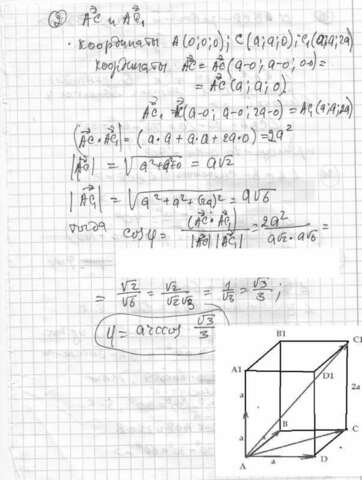 д) AC и AC₁
• координаты A(0;0;0); C(a;a;0); C₁(a;a;2a)
координаты AC = AC(a-0; a-0; 0-0) =
= AC(a; a; 0)
AC₁ = AC(a-0; a-0; 2a-0) = AC₁(a;a;2a)
(AC · AC₁) = (a·a + a·a + 2a·0) = 2a²
|AC| = √a²+a²+0 = a√2
|AC₁| = √a²+a²+(2a)² = a√6
тогда cos φ = (AC · AC₁) / |AC| |AC₁| = 2a² / a√2 · a√6 =
= √2/√6 = √2/√2√3 = 1/√3 = √3/3 ;
φ = arccos √3/3
B1 C1
A1 D1
a 2a
B C
a a
A a D